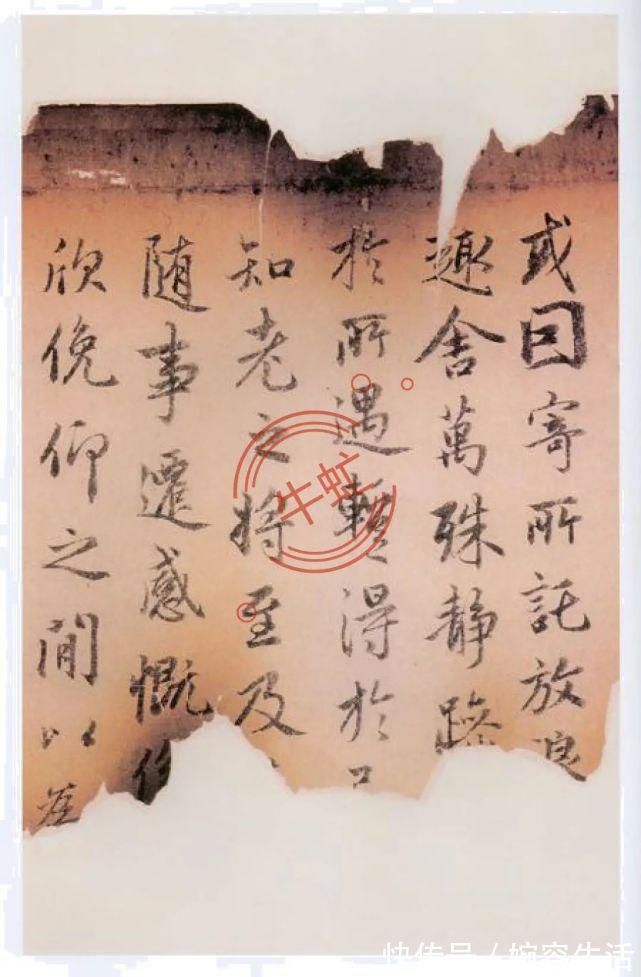 或囙寄所託放浪
趣舍萬殊静躁
於所遇輙得於
知老之将至及
随事遷感慨係
欣俛仰之間以為
牛虻
快传号 / 婉容生活